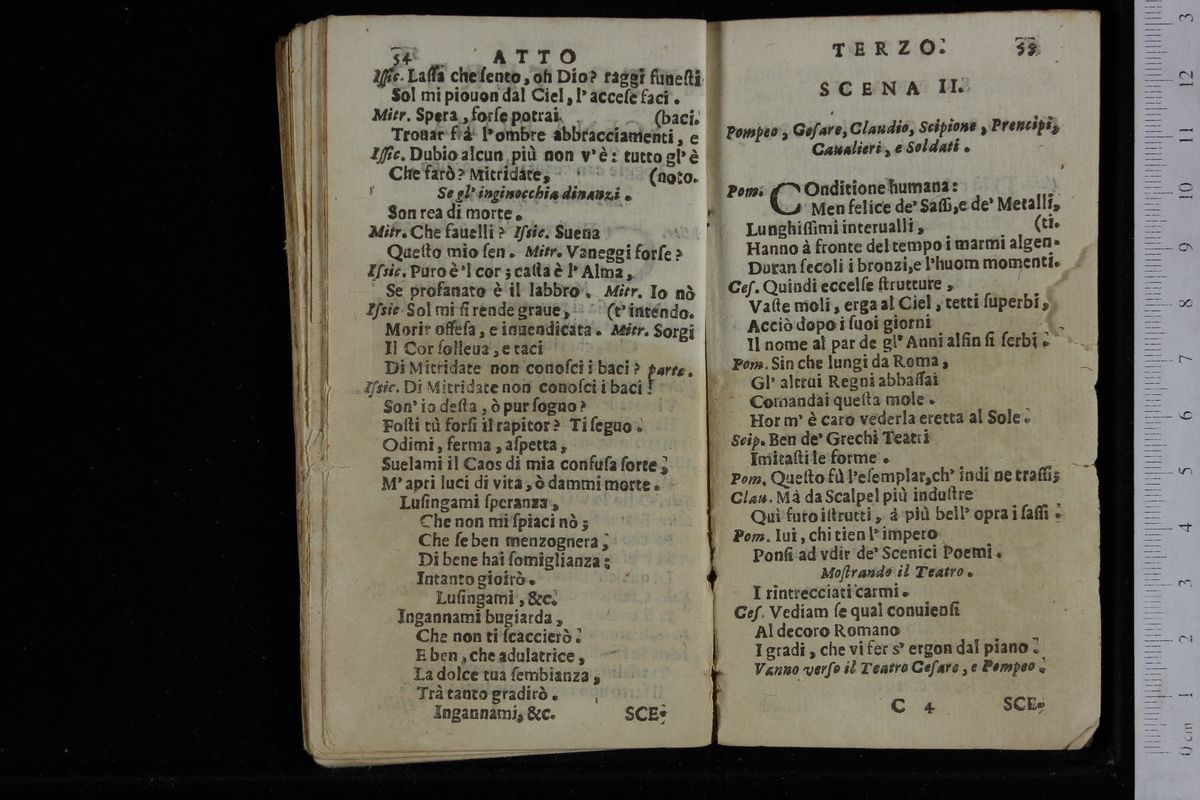 54 ATTO
Issic. Lassa che sento, oh Dio? raggi funesti
Sol mi piouon dal Ciel, l'accese faci.
Mitr. Spera, forse potrai (baci.
Trouar frà l'ombre abbracciamenti, e
Issic. Dubio alcun più non v'è: tutto gl'è
Che farò? Mitridate, (noto.
Se gl'inginocchia dinanzi.
Son rea di morte.
Mitr. Che fauelli? Issic. Suena
Questo mio sen. Mitr. Vaneggi forse?
Issic. Puro è 'l cor; casta è l'Alma,
Se profanato è il labbro. Mitr. Io nò
Issic Sol mi si rende graue, (t'intendo.
Morir offesa, e inuendicata. Mitr. Sorgi
Il Cor solleua, e taci
Di Mitridate non conosci i baci? parte.
Issic. Di Mitridate non conosci i baci!
Son' io desta, ò pur sogno?
Fosti tù forsi il rapitor? Ti seguo.
Odimi, ferma, aspetta,
Suelami il Caos di mia confusa sorte;
M'apri luci di vita, ò dammi morte.
Lusingami speranza,
Che non mi spiaci nò;
Che se ben menzognera;
Di bene hai somiglianza;
Intanto gioirò.
Lusingami, &c.
Ingannami bugiarda,
Che non ti scaccierò.
E ben, che adulatrice,
La dolce tua sembianza,
Trà tanto gradirò.
Ingannami, &c. SCE-
TERZO. 55
SCENA II.
Pompeo, Cesare, Claudio, Scipione, Prencipi,
Caualieri, e Soldati.
Pom. COnditione humana:
Men felice de' Sassi, e de' Metalli,
Lunghissimi interualli, (ti.
Hanno à fronte del tempo i marmi algen-
Duran secoli i bronzi, e l'huom momenti.
Ces. Quindi eccelse strutture,
Vaste moli, erga al Ciel, tetti superbi,
Acciò dopo i suoi giorni
Il nome al par de gl'Anni alfin si serbi.
Pom. Sin che lungi da Roma,
Gl' altrui Regni abbassai
Comandai questa mole.
Hor m' è caro vederla eretta al Sole.
Scip. Ben de' Grechi Teatri
Imitasti le forme.
Pom. Questo fù l'esemplar, ch' indi ne trassi;
Clau. Mà da Scalpel più industre
Quì furo istrutti, à più bell' opra i sassi.
Pom. Iui, chi tien l'impero
Ponsi ad vdir de' Scenici Poemi.
Mostrando il Teatro.
I rintrecciati carmi.
Ces. Vediam se qual conuiensi
Al decoro Romano
I gradi, che vi fer s'ergon dal piano.
Vanno verso il Teatro Cesare, e Pompeo.
C 4 SCE-